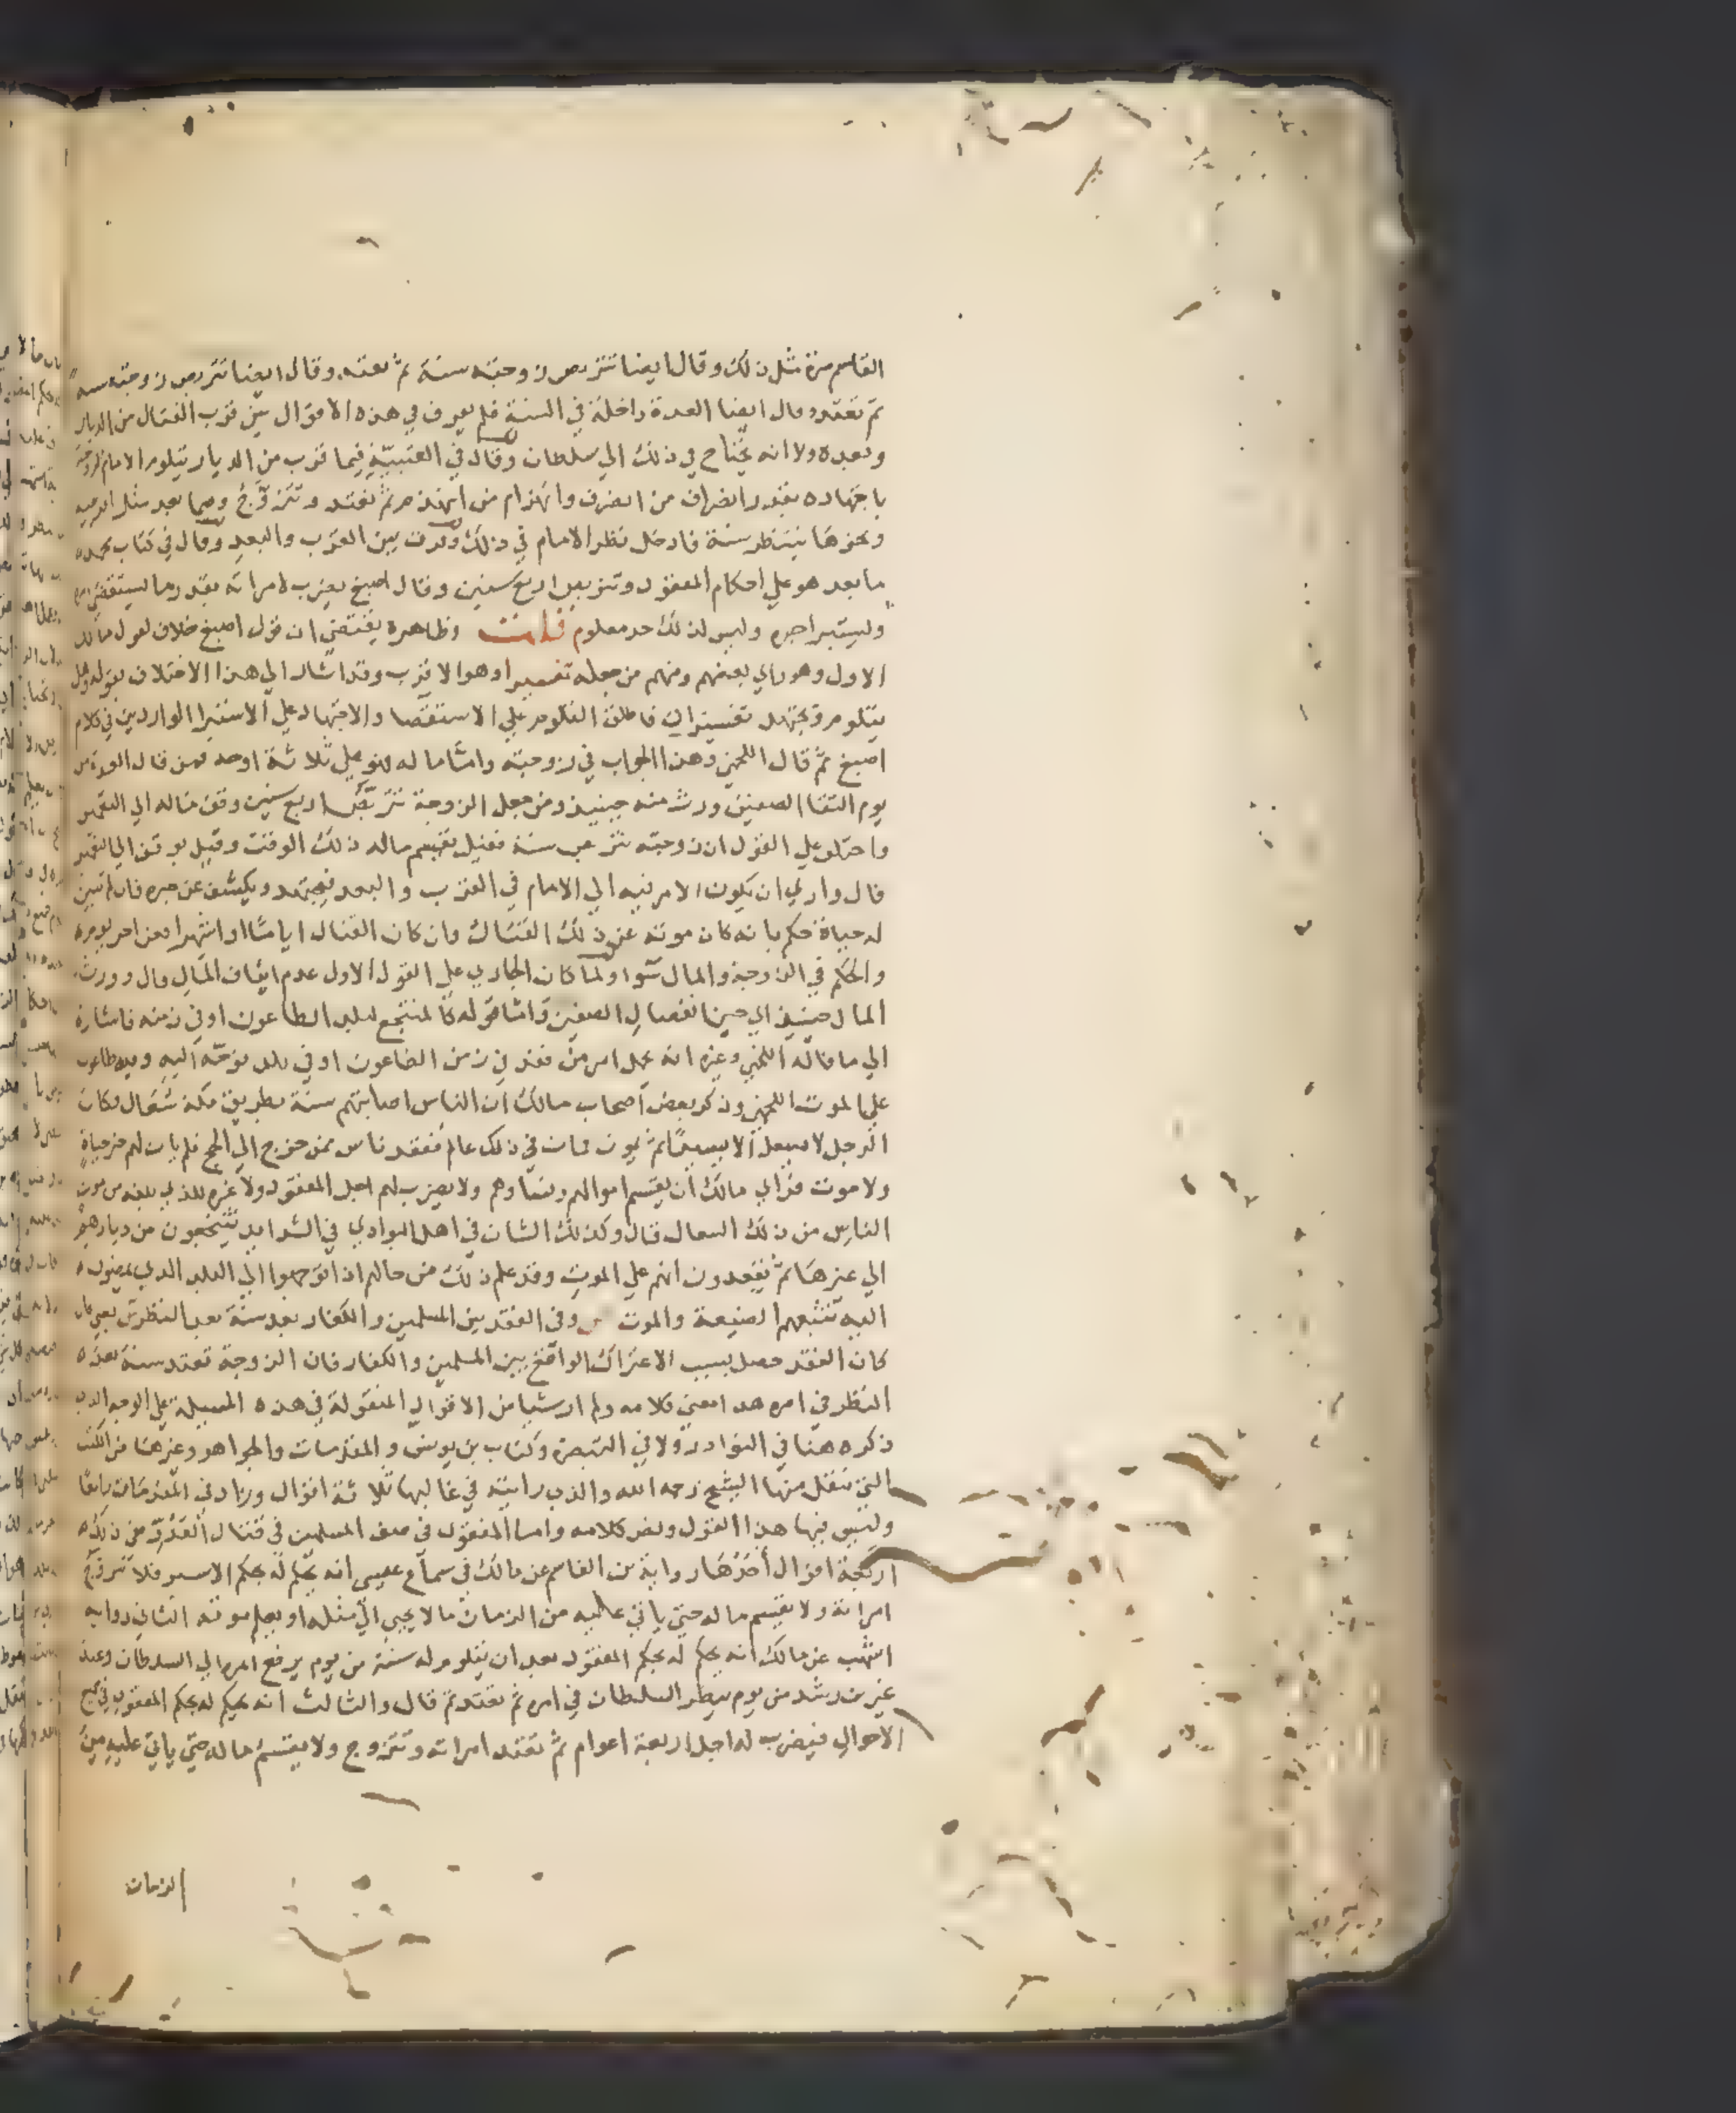 القاسم مرة مثل ذلك وقال ايضا تتربص زوجته سنة ثم تعتد وقال ايضا تتربص زوجته سنة
ثم تعتد وقال ايضا العدة داخلة في السنة فلم يفرق في هذه الاقوال بين قرب القتال من الديار
وبعده ولا انه يحتاج في ذلك الي سلطان وقال في العتبية فيما قرب من الديار يتلوم الامام لزوجته
باجتهاده بقدر انصراف من انصرف وانهزام من انهزم ثم تعتد وتتزوج وفيما بعد مثل افريقية
ونحوها ينتظر سنة فادخل نظر الامام في ذلك وفرق بين القرب والبعد وقال في كتاب محمد
ما بعد هو علي احكام المفقود وتتربص اربع سنين وقال اصبغ يضرب لامراته بقدر ما يستقصي امره
ويستبرا خبره وليس لذلك حد معلوم قلت وظاهره يقتضي ان قول اصبغ خلاف لقول مالك
الاول وهو راي بعضهم ومنهم من جعله تفسيرا وهو الاقرب وقد اشار الي هذا الاختلاف بقوله وهل
يتلوم ويجتهد تفسيران فاطلق التلوم علي الاستقصا والاجتهاد علي الاستبرا الواردين في كلام
اصبغ ثم قال اللخمي وهذا الجواب في زوجته واما ماله فهو علي ثلاثة اوجه فمن قال العدة من
يوم التقا الصفين ورث منه حينيذ ومن جعل الزوجة تتربص اربع سنين وقف ماله الي التعمير
واختلف علي القول ان زوجته تتربص سنة فقيل يقسم ماله ذلك الوقت وقيل يوقف الي التعمير
قال واري ان يكون الامر فيه الي الامام في القرب والبعد فيجتهد ويكشف عن خبره فان لم تبين
له حياة حكم بانه كان موته عن ذلك القتال وان كان القتال اياما او اشهرا فعن اخر يومه
والحكم في الزوجة والمال سوا ولما كان الجاري علي القول الاول عدم ايقاف المال قال وورث
المال حينيذ اي حين انفصال الصفين واما قوله كالمنتجع لبلد الطاعون او في زمنه فاشارة
الي ما قاله اللخمي وغيره انه يحمل امر من فقد في زمن الطاعون او في بلد توجه اليه وفيه طاعون
علي الموت اللخمي وذكر بعض اصحاب مالك ان الناس اصابهم سنة بطريق مكة سعال فكان
الرجل لا يسعل الا يسيرا ثم يموت فمات في ذلك عالم ففقد ناس ممن خرج الي الحج فلم يات لهم خبر حياة
ولا موت فراي مالك ان يقسم اموالهم ونساوهم ولا يضرب لهم اجل المفقود ولا غيره للذي بلغه من موت
الناس من ذلك السعال قال وكذلك الشان في اهل البوادي في الشدايد ينتجعون من ديارهم
الي غيرها ثم يفقدون انهم علي الموت وقد علم ذلك من حالهم اذا توجهوا الي البلد الذي يمضون
اليه تتبعهم الضيعة والموت ص وفي الفقد بين المسلمين والكفار بعد سنة بعد النظر ش يعني فان
كان الفقد حصل بسبب الاعتراك الواقع بين المسلمين والكفار فان الزوجة تعتد سنة بعد
النظر في امره هذا معني كلامه ولم ار شيا من الاقوال المنقولة في هذه المسيلة علي الوجه الذي
ذكره هنا في النوادر ولا في التبصرة وكتاب بن يونس والمقدمات والجواهر وغيرها من الكتب
التي ينقل منها الشيخ رحمه الله والذي رايته في غالبها ثلاثة اقوال وزاد في المقدمات رابعا
وليس فيها هذا القول ونص كلامه واما المفقود في صف المسلمين في قتال العدو ففي ذلك
اربعة اقوال احدها رواية بن القاسم عن مالك في سماع عيسي انه يحكم له بحكم الاسير فلا تتزوج
امراته ولا يقسم ماله حتي ياتي عليه من الزمان ما لا يجي الي مثله او يعلم موته الثاني رواية
اشهب عن مالك انه يحكم له بحكم المفقود بعد ان يتلوم له سنة من يوم يرفع امره الي السلطان وعند
غير بن رشد من يوم ينظر السلطان في امره ثم تعتد ثم قال والثالث انه يحكم له بحكم المفقود في جميع
الاحوال فيضرب له اجل اربعة اعوام ثم تعتد امراته وتتزوج ولا يقسم ماله حتي ياتي عليه من
الزمان